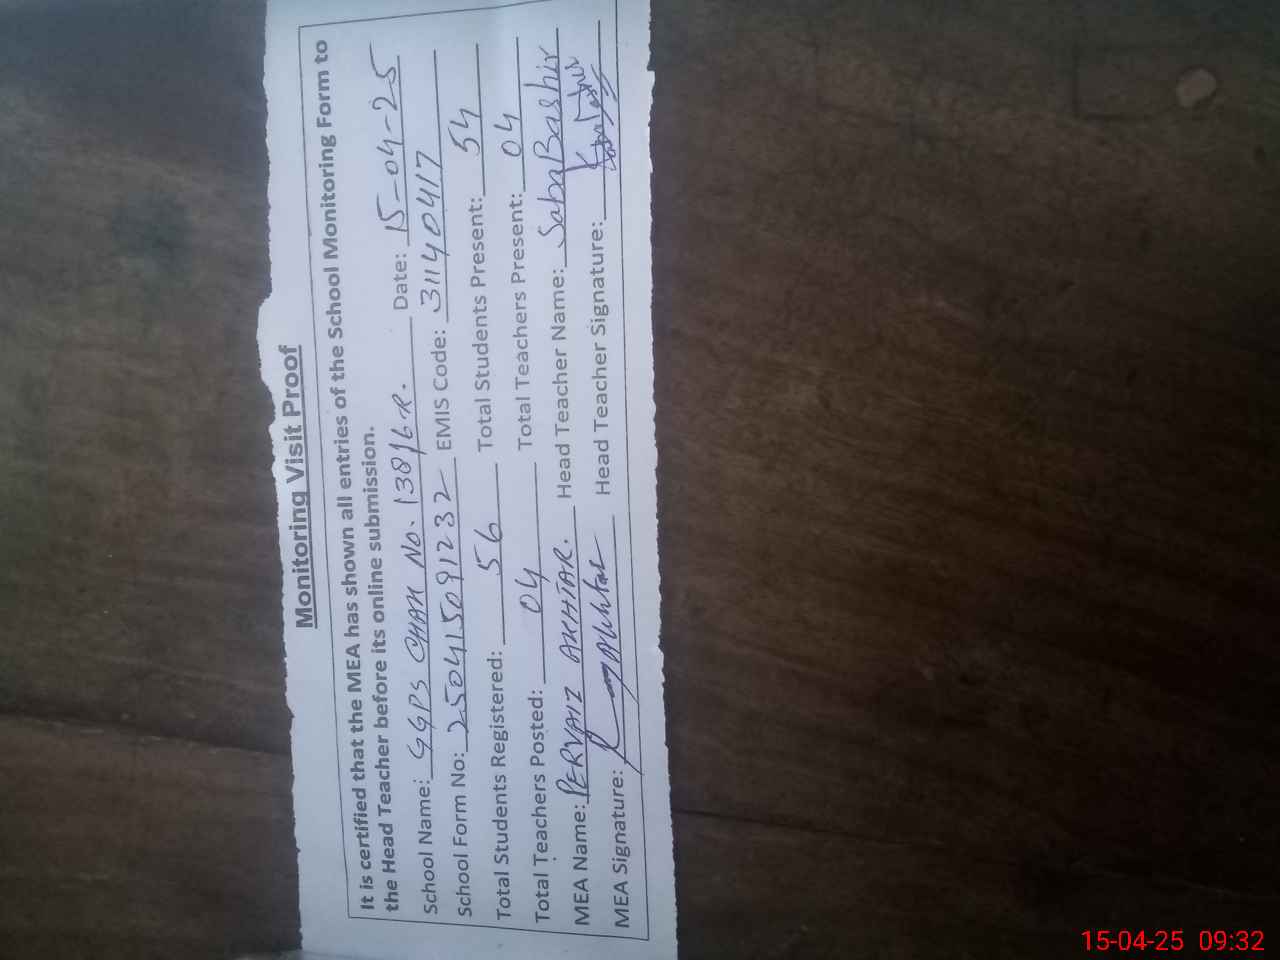 Monitoring Visit Proof
It is certified that the MEA has shown all entries of the School Monitoring Form to
the Head Teacher before its online submission.
School Name: GGPS CHAK NO. 138/6-R. Date: 15-04-25
School Form No: 250415091232 EMIS Code: 31140417
Total Students Registered: 56 Total Students Present: 54
Total Teachers Posted: 04 Total Teachers Present: 04
MEA Name: PERVAIZ AKHTAR. Head Teacher Name: Saba Bashir
MEA Signature: Akhtar Head Teacher Signature:
15-04-25 09:32